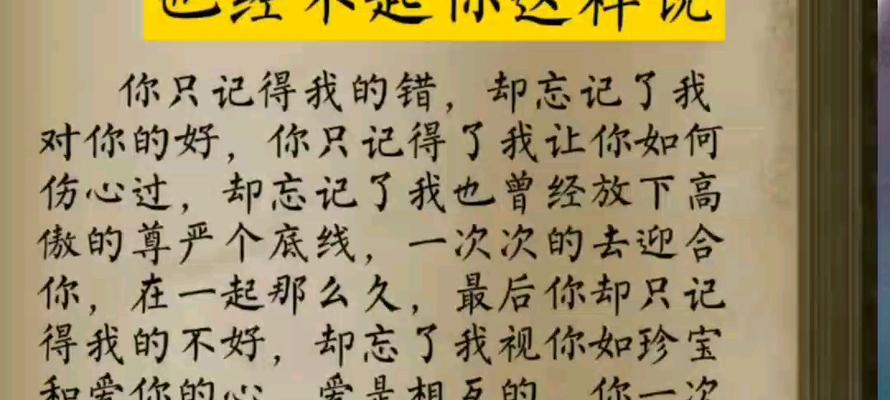 也经不起你这样说
你只记得我的错，却忘记了我
对你的好，你只记得了我让你如何
伤心过，却忘记了我也曾经放下高
傲的尊严个底线，一次次的去迎合
你，在一起那么久，最后你却只记
得我的不好，却忘了我视你如珍宝
和爱你的心，爱是相互的，你一次